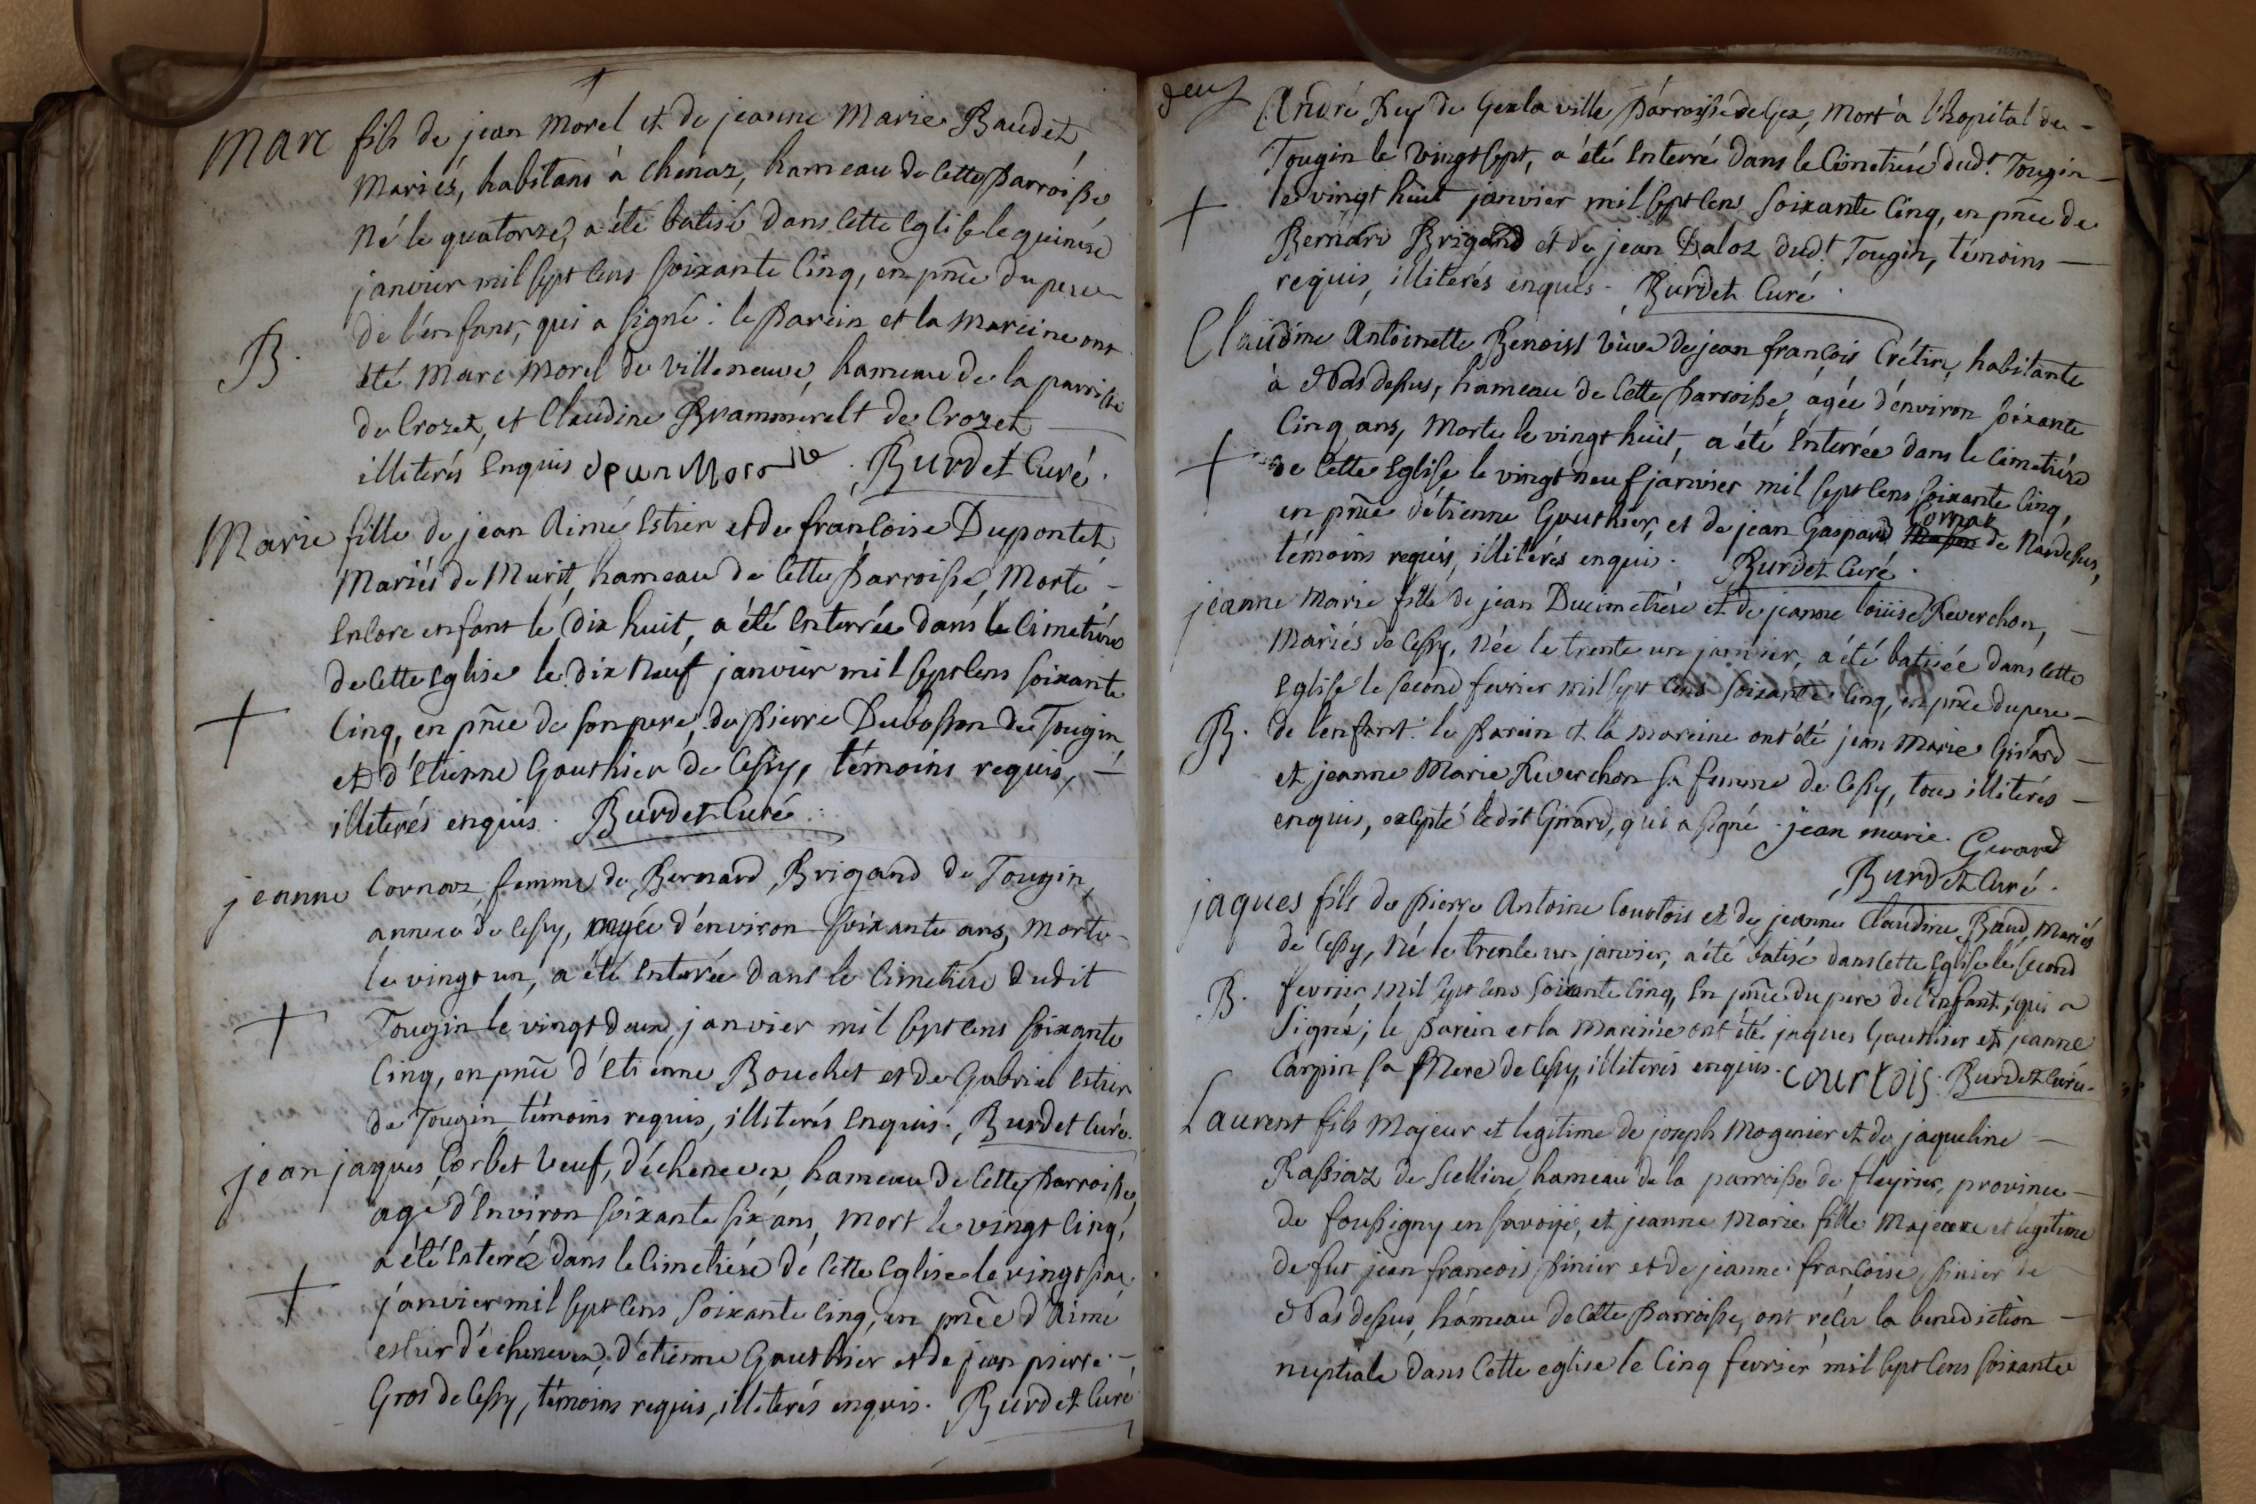 Marc fils de jean Morel et de jeanne Marie Baudet,
Mariés, habitans à chenaz, hameau de cette parroisse
Né le quatorze, a été batisé dans cette eglise le quinze
janvier mil sept cens soixante cinq, en pnce du pere
de l'enfant, qui a signé : le parein et la mareine ont
B.
été Marc Morel de villeneuve, hameau de la parroisse
de Crozet, et Claudine Brammerelt de Crozet
illiterés enquis Burdet Curé.
Marie fille de jean Aimé Estier et de françoise Dupontet
Mariés de Murit, hameau de cette parroisse, Morte
encore enfant le dix huit, a été enterrée dans le cimetière
de cette eglise le dix neuf janvier mil sept cens soixante
cinq, en pnce de son pere, de pierre Dubosson de Tougin,
et d'etienne Gauthier de Cessy, témoins requis,
illiterés enquis. Burdet Curé.
jeanne Cornaz, femme de Bernard Brigand de Tougin,
annexe de Cessy, agée d'environ soixante ans, morte
le vingt un, a été enterrée dans le cimetière dudit
Tougin le vingt deux janvier mil sept cens soixante
cinq, en pnce d'etienne Bouchet et de Gabriel Estier
de Tougin témoins requis, illiterés enquis., Burdet Curé.
jean jaques Corbet veuf, d'échenevex, hameau de cette parroisse,
agé d'environ soixante six ans, mort le vingt cinq,
a été enterré dans le cimetière de cette eglise le vingt six
janvier mil sept cens soixante cinq, en pnce d'Aimé
estier d'échenevex, d'étienne Gauthier et de jean pierre
Gros de Cessy, témoins requis, illiterés enquis. Burdet Curé
deux
André Rey de Gex la ville parroisse de Gex, Mort à l'hopital de
Tougin le vingt sept, a été enterré dans le Cimetière dudt. Tougin
le vingt huit janvier mil sept cens soixante cinq, en pnce de
Bernard Brigand et de jean Daloz dudt. Tougin, témoins
requis, illiterés enquis. Burdet Curé.
Claudine Antoinette Benoist veuve de jean françois Crétin, habitante
à Nas dessus, hameau de cette parroisse, agée d'environ soixante
cinq ans, Morte le vingt huit, a été enterrée dans le cimetière
de cette eglise le vingt neuf janvier mil sept cens soixante cinq,
en pnce d'étienne Gauthier, et de jean Gaspard Cornaz de Nasdessus,
témoins requis, illiterés enquis. Burdet Curé.
jeanne Marie fille de jean Ducimetière et de jeanne loüise Reverchon,
Mariés de Cessy, Née le trente un janvier, a été batisée dans cette
eglise le second fevrier mil sept cens soixante cinq, en pnce du pere
B. de l'enfant : le parein et la mareine ont été jean Marie Girard
et jeanne Marie Reverchon sa femme de Cessy, tous illiterés
enquis, excepté ledit Girard, qui a signé. jean marie. Gerard
Burdet Curé.
jaques fils de pierre Antoine Courtois et de jeanne Claudine Baud, Mariés
de Cessy, Né le trente un janvier, a été batisé dans cette Eglise le second
B. fevrier mil sept cens soixante cinq, en pnce du pere de l'enfant, qui a
signé ; le parein et la mareine ont été jaques Gauthier et jeanne
Carpin sa Mere de Cessy, illiterés enquis. Courtois. Burdet Curé.
Laurent fils Majeur et legitime de joseph Mogenier et de jaqueline
Rassiaz de Scellier, hameau de la parroisse de fleyrier, province
de foussigny en savoije, et jeanne Marie fille Majeure et legitime
de fut jean francois pinier et de jeanne françoise pinier de
Nas dessus, hameau de cette parroisse, ont récu la benediction
nuptiale dans cette eglise le cinq fevrier mil sept cens soixante